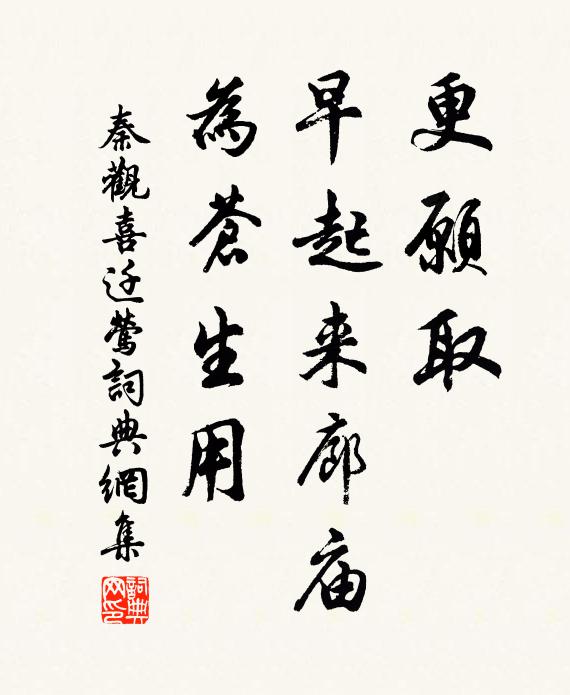 更願取
早起来廊庙
為蒼生用
秦觀喜迁鶯詞典網集
詞典网印